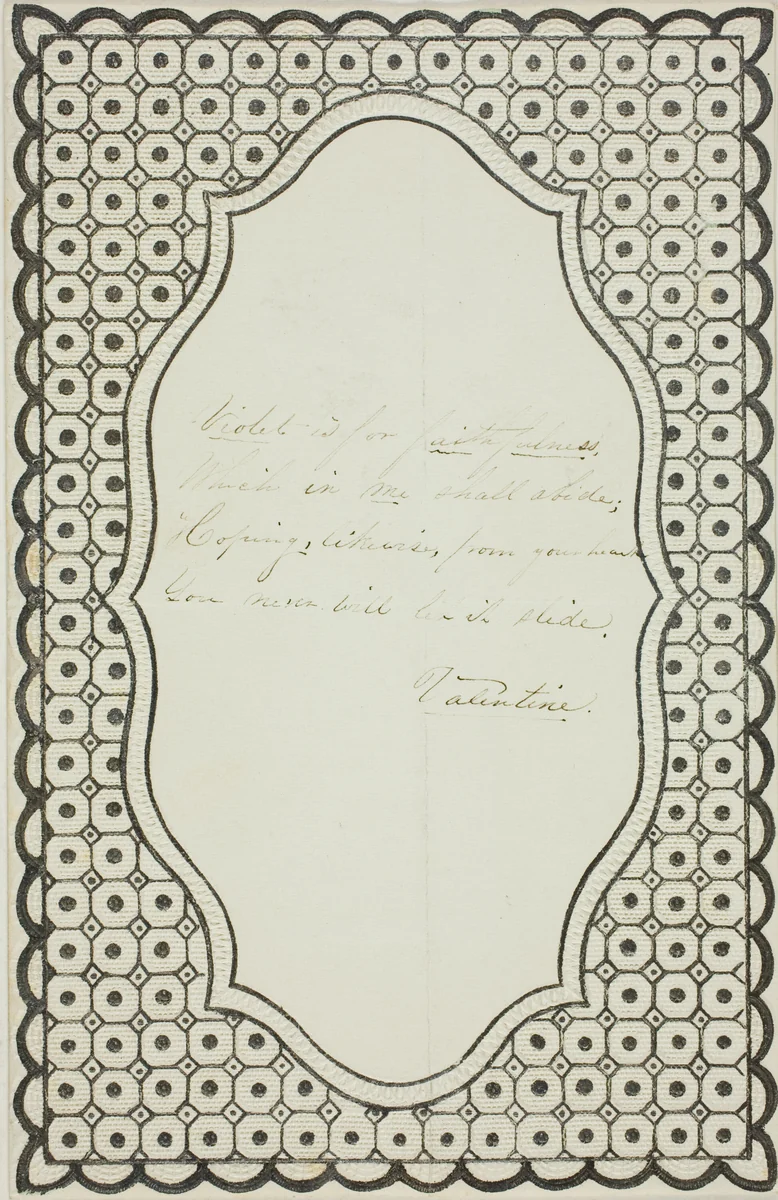 Violet is for faithfulness,
Which in me shall abide;
"Hoping, likewise, from your heart
You never will let it slide.
Valentine.